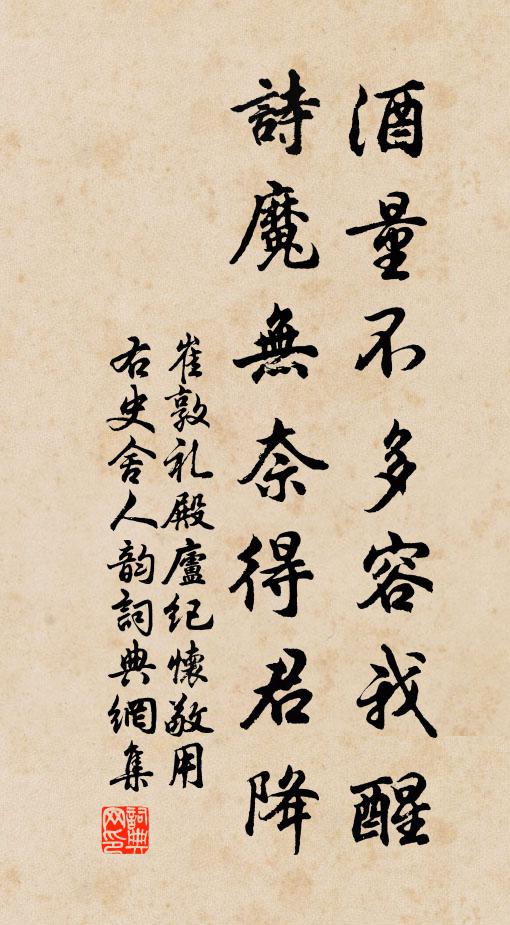 酒量不多容我醒
詩魔無奈得君降
崔敦礼殿廬紀懷敬用
右史舍人韵詞典網集
詞典网印